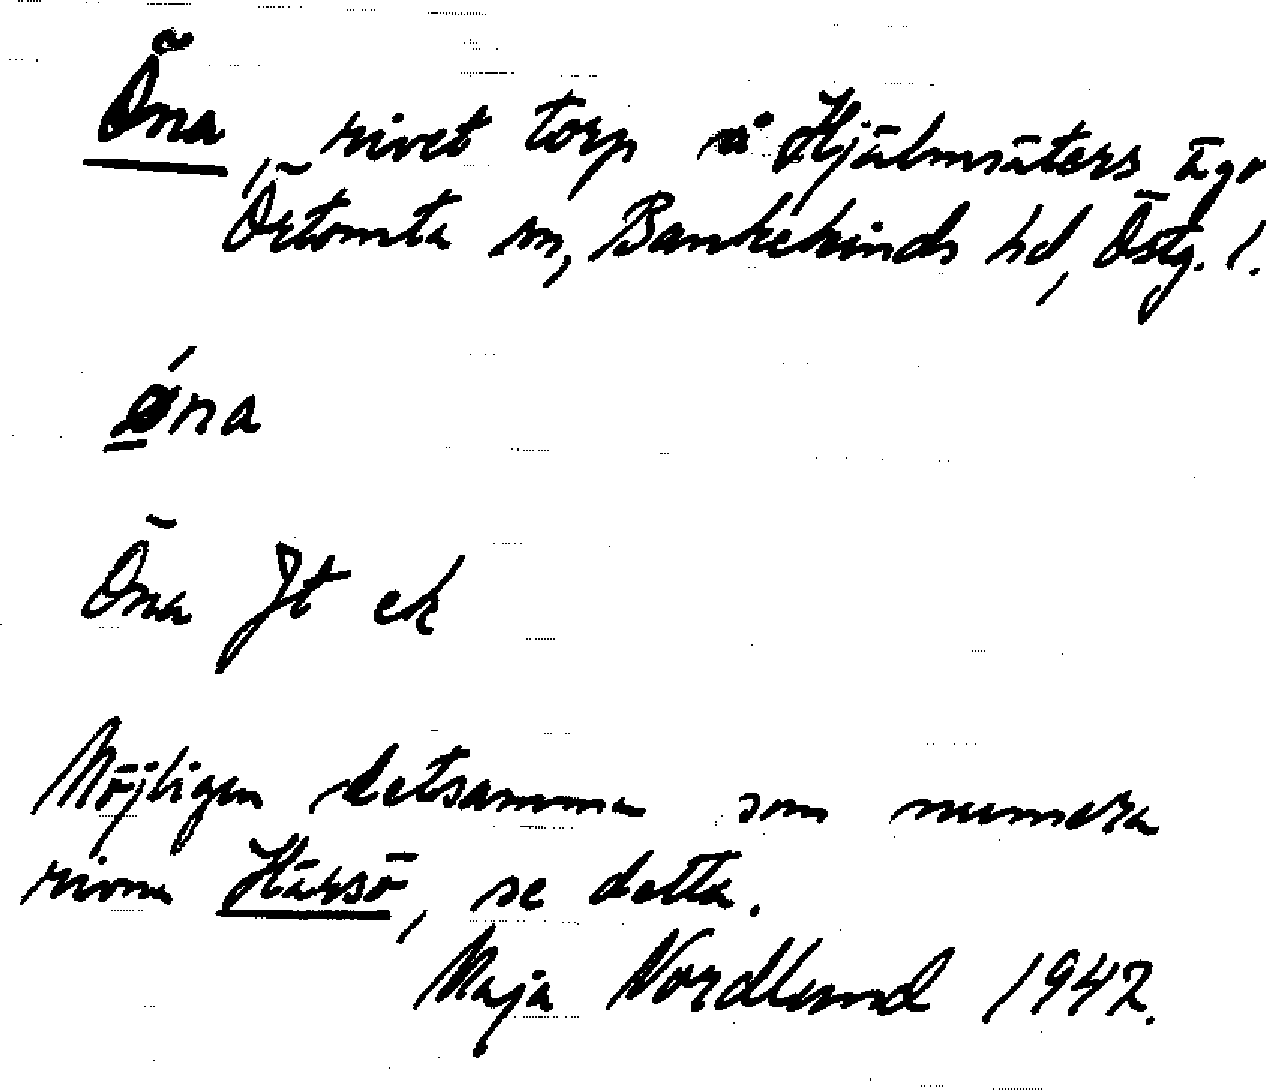 Öna, rivet torp å Hjälmsäters ägor
Örtomta sn, Bankekinds hd, Östg. l.
ǿna
Öna Jt ek
Möjligen detsamma som numera
rivna Härsö, se detta.
Maja Nordlund 1942.